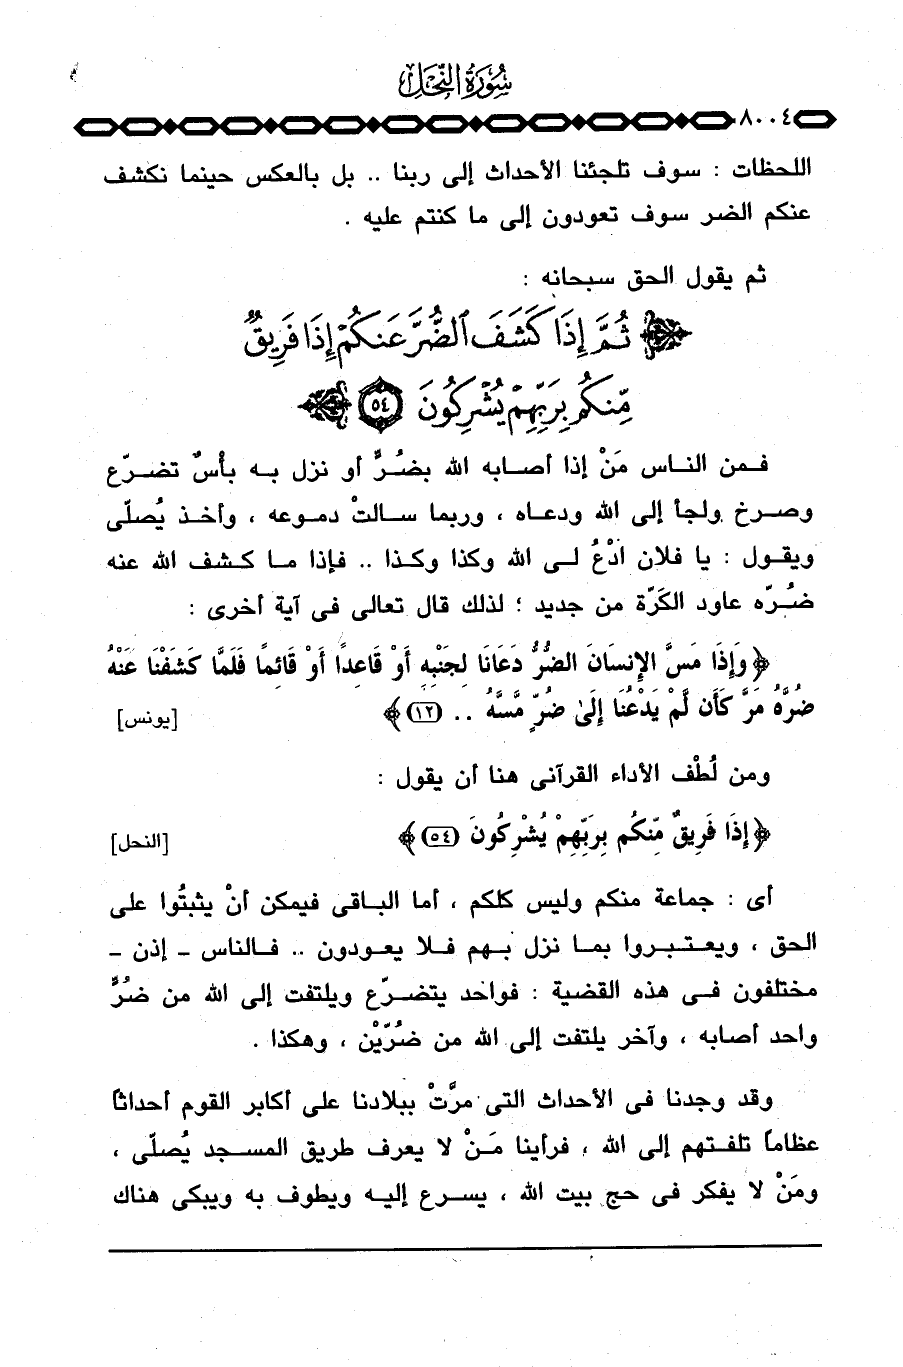 سُورَةُ النَّحْلِ
٨٠٠٤
اللحظات : سوف تلجئنا الأحداث إلى ربنا .. بل بالعكس حينما نكشف
عنكم الضر سوف تعودون إلى ما كنتم عليه .
ثم يقول الحق سبحانه :
ثُمَّ إِذَا كَشَفَ ٱلضُّرَّ عَنكُمْ إِذَا فَرِيقٌ
مِّنكُم بِرَبِّهِمْ يُشْرِكُونَ ٥٤
فـمن النـاس مَنْ إذا أصـابه الله بضُـرٍّ أو نزل بـه بأْسٌ تضـرّع
وصـرخ ولجأ إلى الله ودعـاه ، وربما سـالتْ دمـوعه ، وأخـذ يُصلّى
ويقـول : يا فلان ادْعُ لـى الله وكذا وكـذا .. فإذا مـا كـشف الله عنه
ضُـرّه عاود الكَرّة من جديد ؛ لذلك قال تعالى فى آية أخرى :
﴿ وَإِذَا مَسَّ الإِنسَانَ الضُّرُّ دَعَانَا لِجَنْبِهِ أَوْ قَاعِدًا أَوْ قَائِمًا فَلَمَّا كَشَفْنَا عَنْهُ
ضُرَّهُ مَرَّ كَأَن لَّمْ يَدْعُنَا إِلَىٰ ضُرٍّ مَّسَّهُ .. (١٢) ﴾ [يونس]
ومن لُطْف الأداء القرآنى هنا أن يقول :
﴿ إِذَا فَرِيقٌ مِّنكُم بِرَبِّهِمْ يُشْرِكُونَ (٥٤) ﴾ [النحل]
أى : جماعة منكم وليس كلكم ، أما البـاقى فيمكن أنْ يثبتُوا على
الحق ، ويعـتـبـروا بمـا نزل بـهم فـلا يعـودون .. فـالناس - إذن -
مختلفون فـى هذه القضية : فواحد يتضـرّع ويلتفت إلى الله من ضُرٍّ
واحد أصابه ، وآخر يلتفت إلى الله من ضُرّيْن ، وهكذا .
وقد وجدنا فى الأحداث التى مرَّتْ ببلادنا على أكابر القوم أحداثاً
عظاماً تلفـتهم إلى الله ، فرأينا مَـنْ لا يعرف طريق المسـجد يُصلّى ،
ومَنْ لا يفكر فى حج بيت الله ، يسـرع إليـه ويطوف به ويبكى هناك